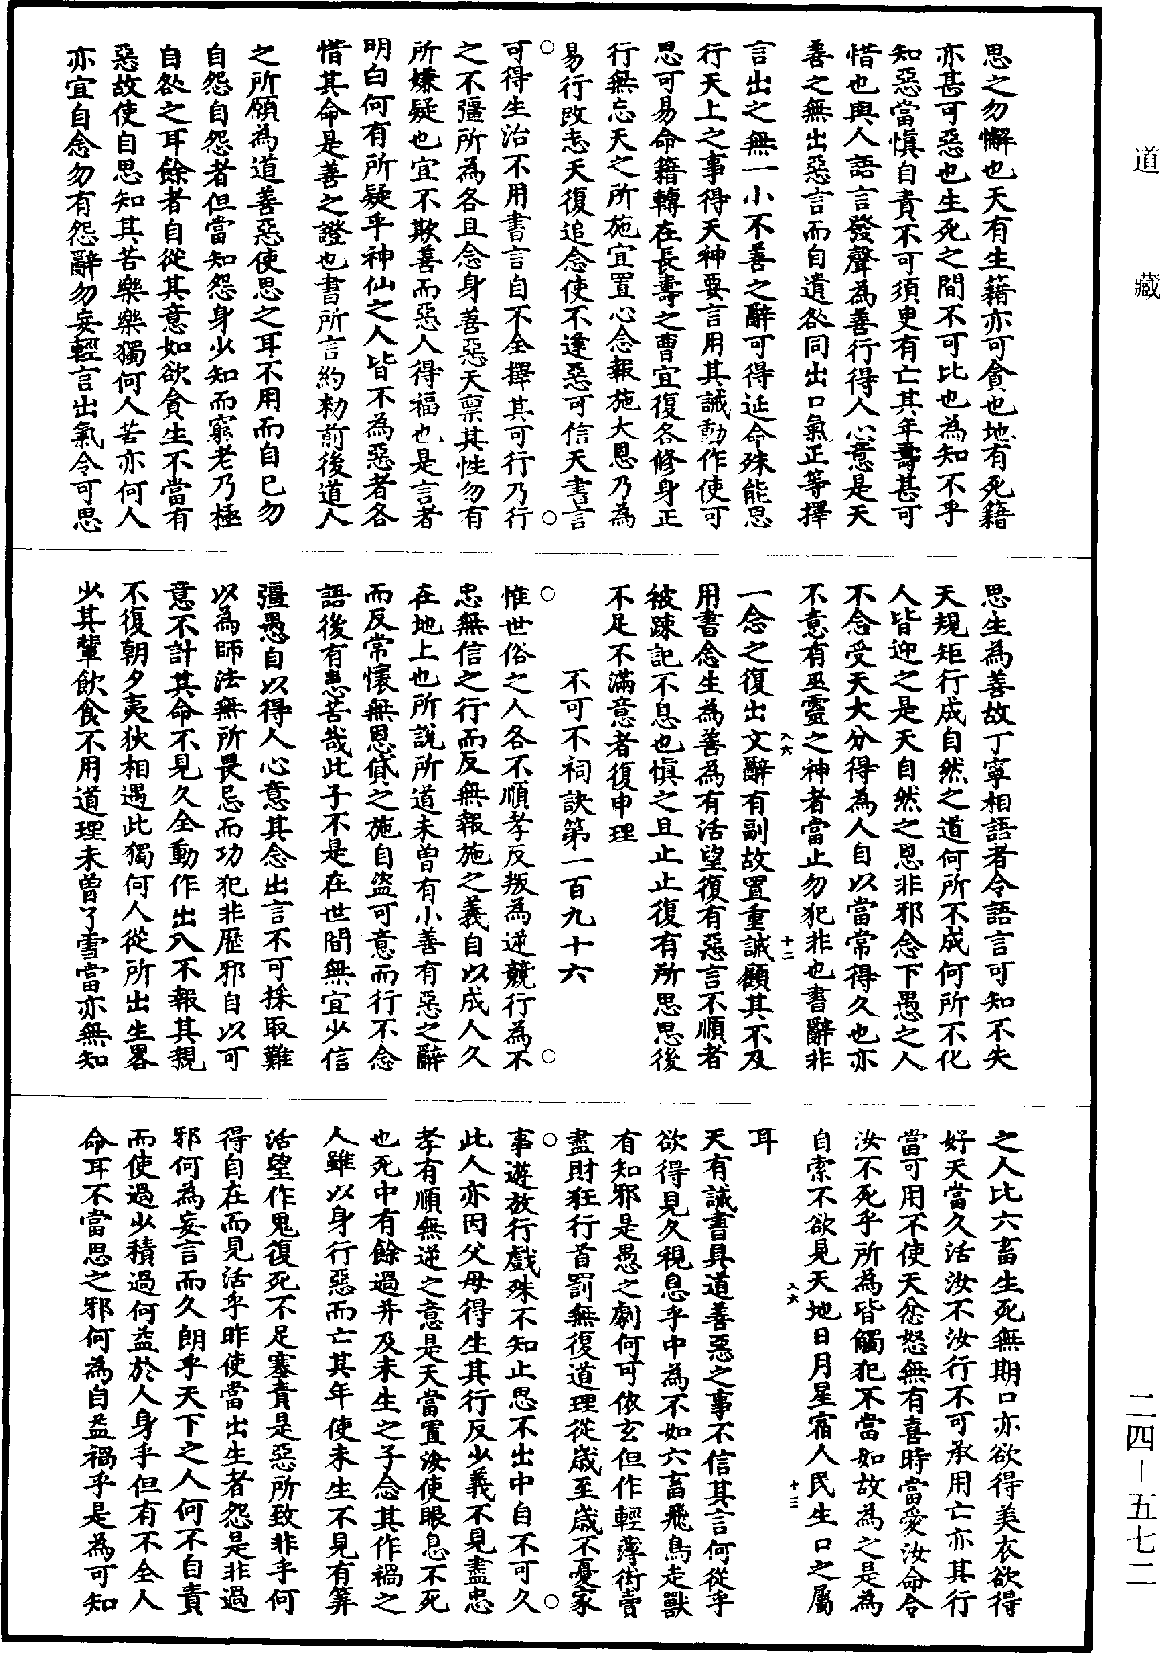 道藏
思之勿懈也天有生籍亦可貪也地有死籍
亦甚可惡也生死之間不可比也為知不乎
知惡當慎自責不可須臾有亡其年壽甚可
惜也與人語言發聲為善行得人心意是天
善之無出惡言而自遺咎同出口氣正等擇
言出之無一小不善之辭可得延命殊能思
行天上之事得天神要言用其誡動作使可
思可易命籍轉在長壽之曹宜復各修身正
行無忘天之所施宜置心念報施大恩乃為
易行改志天復追念使不逢惡可信天書言
可得生治不用書言自不全擇其可行乃行
之不彊所為各且念身善惡天稟其性勿有
所嫌疑也宜不欺善而惡人得福也是言者
明白何有所疑乎神仙之人皆不為惡者各
惜其命是善之證也書所言約勑前後道人
之所願為道善惡使思之耳不用而自已勿
自怨自怨者但當知怨身少知而窮老乃極
自咎之耳餘者自從其意如欲貪生不當有
惡故使自思知其苦樂樂獨何人苦亦何人
亦宜自念勿有怨辭勿妄輕言出氣令可思
思生為善故丁寧相語者令語言可知不失
天規矩行成自然之道何所不成何所不化
人皆迎之是天自然之恩非邪念下愚之人
不念受天大分得為人自以當常得久也亦
不意有巫靈之神者當止勿犯非也書辭非
一念之復出文辭有副故置重誡顧其不及
八六
十二
用書念生為善為有活望復有惡言不順者
被疎記不息也慎之且止止復有所思思後
不足不滿意者復申理
不可不祠訣第一百九十六
惟世俗之人各不順孝反叛為逆競行為不
忠無信之行而反無報施之義自以成人久
在地上也所說所道未曾有小善有惡之辭
而反常懷無恩貸之施自盜可意而行不念
語後有患苦哉此子不是在世間無宜少信
彊愚自以得人心意其念出言不可採取難
以為師法無所畏忌而功犯非歷邪自以可
意不計其命不見久全動作出入不報其親
不復朝夕夷狄相遇此獨何人從所出生畧
少其輩飲食不用道理未曾了雪當亦無知
之人比六畜生死無期口亦欲得美衣欲得
好天當久活汝不汝行不可承用亡亦其行
當可用不使天忿怒無有喜時當愛汝命令
汝不死乎所為皆觸犯不當如故為之是為
自索不欲見天地日月星宿人民生口之屬
八六
十三
耳
天有誡書具道善惡之事不信其言何從乎
欲得見久視息乎中為不如六畜飛鳥走獸
有知邪是愚之劇何可依玄但作輕薄衒賣
盡財狂行首罰無復道理從歲至歲不憂家
事遊放行戲殊不知止思不出中自不可久
此人亦因父母得生其行反少義不見盡忠
孝有順無逆之意是天當置汝使眼息不死
也死中有餘過并及未生之子念其作禍之
人雖以身行惡而亡其年使未生不見有筭
活望作鬼復死不足塞責是惡所致非乎何
得自在而見活乎昨使當出生者怨是非過
邪何為妄言而久朗乎天下之人何不自責
而使過少積過何益於人身乎但有不全人
命耳不當思之邪何為自益禍乎是為可知
二四—五七二